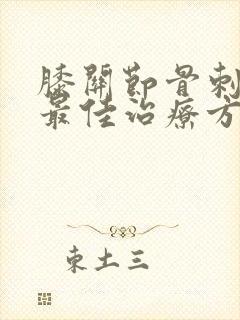 膝關節骨刺
最佳治療方
東土三